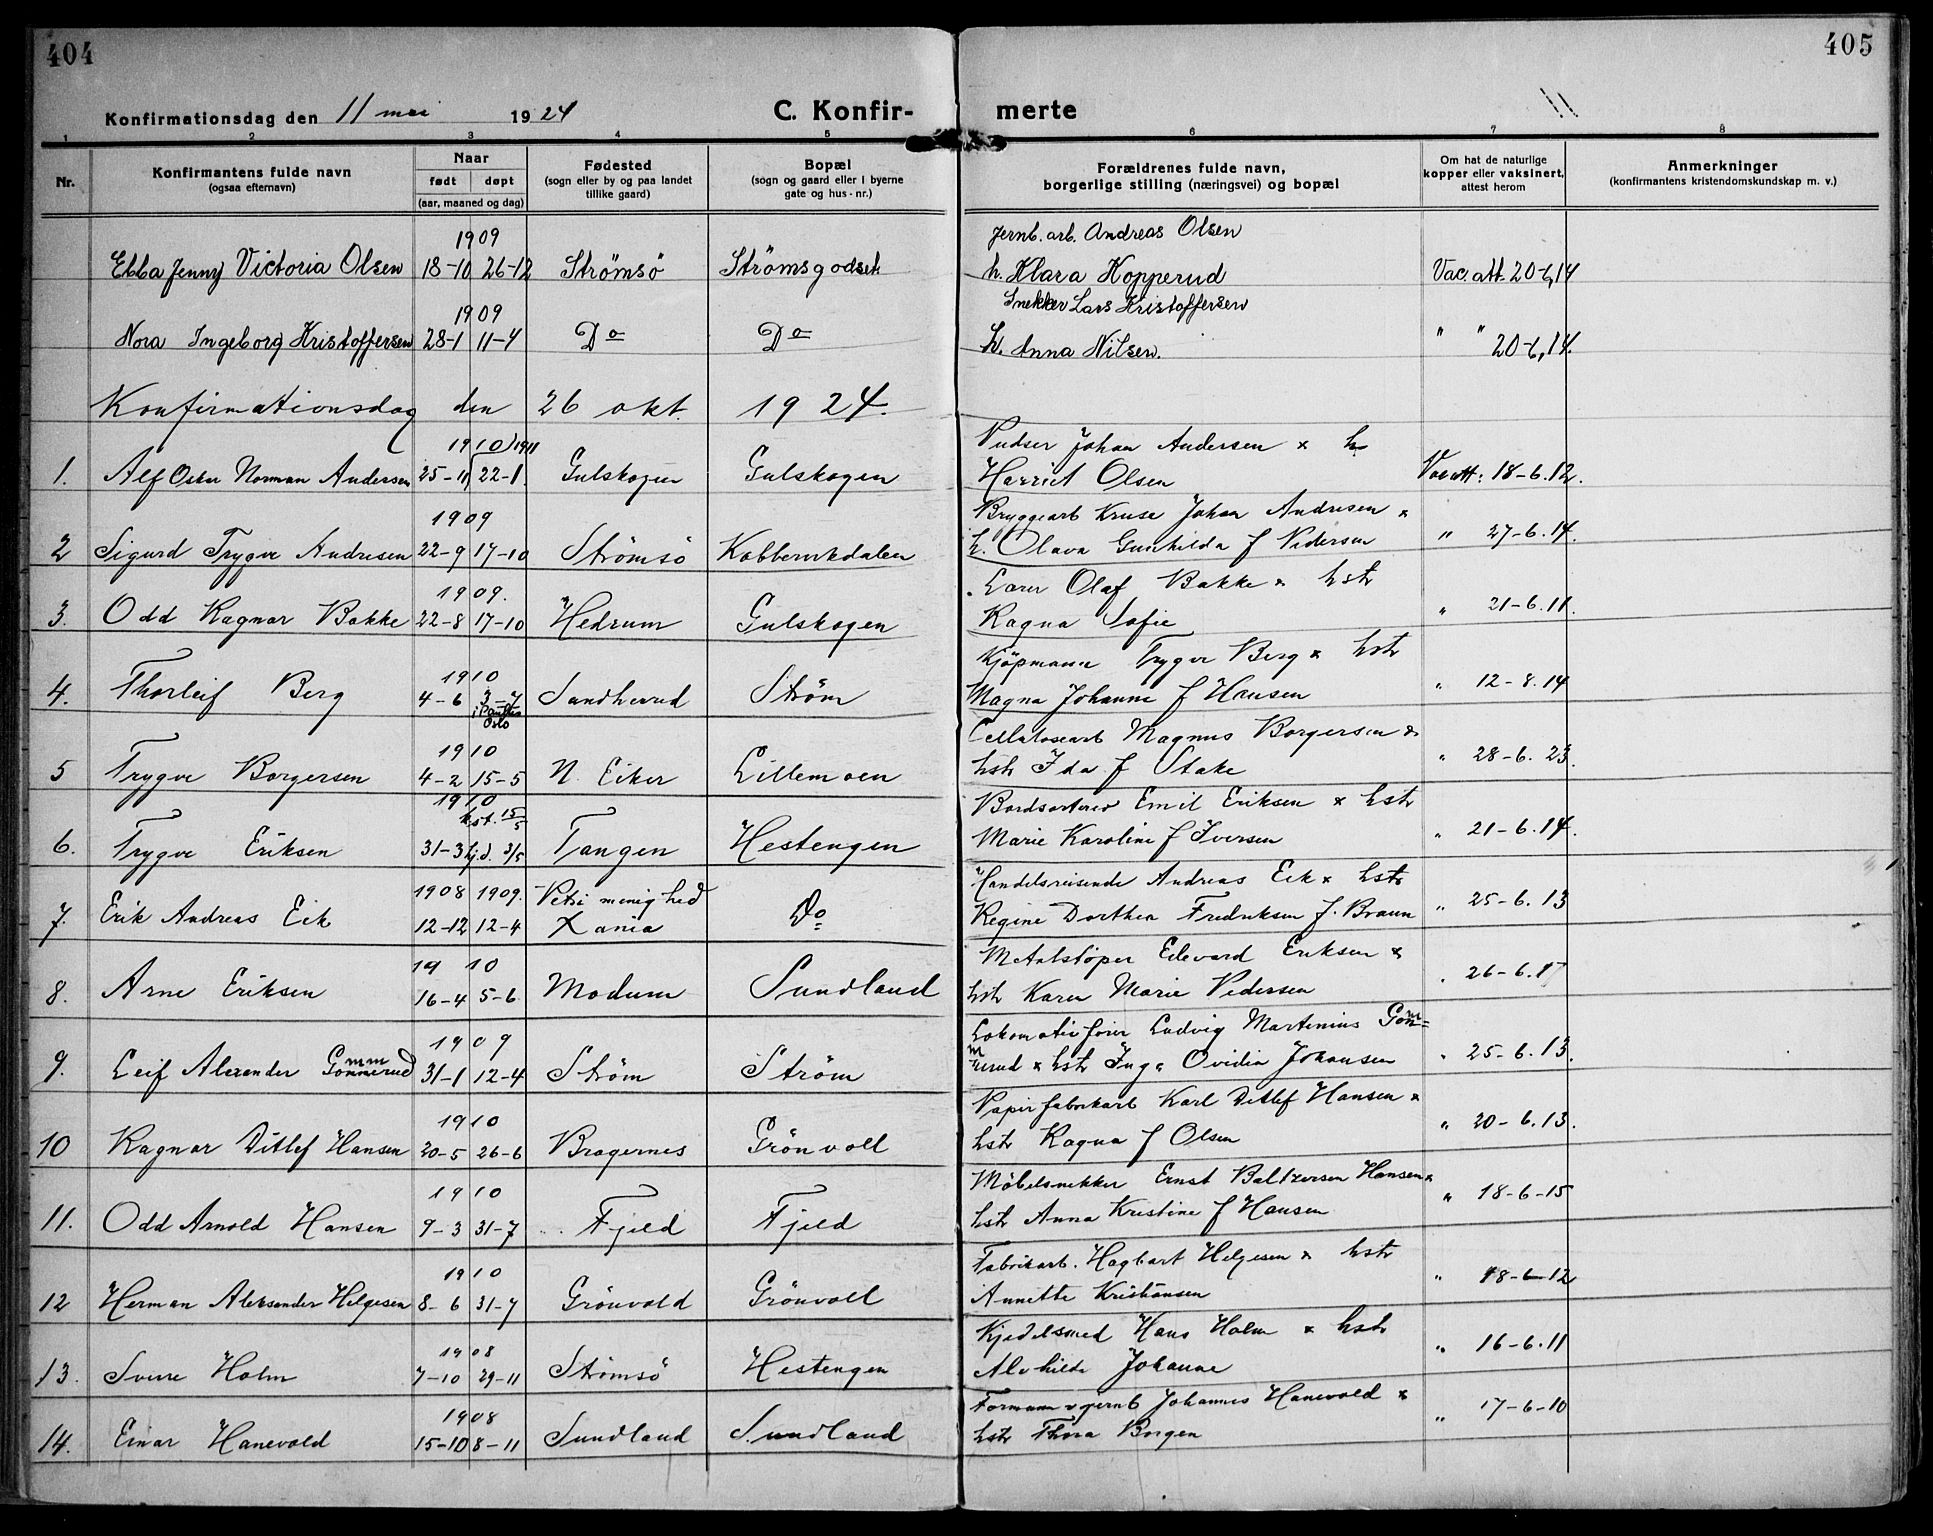 404
405
Konfirmationsdag den 11 mai 1924
C. Konfirmerte
11
1 2 3 4 5 6 7 8
Nr.
Konfirmantens fulde navn
(ogsaa efternavn)
Naar
født døpt
(aar, maaned og dag)
Fødested
(sogn eller by og paa landet
tillike gaard)
Bopæl
(sogn og gaard eller i byerne
gate og hus-nr.)
Forældrenes fulde navn,
borgerlige stilling (næringsvei) og bopæl
Om hat de naturlige
kopper eller vaksinert,
attest herom
Anmerkninger
(konfirmantens kristendomskundskap m. v.)
1909 Jernb. arb. Andreas Olsen
Ebba Jenny Victoria Olsen 18-10 26-12 Strömsö Strömsgodset h. Klara Kopperud Vac. att. 20-6, 14
1909 Snekker Lars Kristoffersen
Nora Ingeborg Kristoffersen 28-1 11-4 Do Do h. Anna Nilsen. " " 20-6, 14.
Konfirmationsdag den 26 okt. 1924.
1910) 1911 Pudser Johan Andersen × h
1. Alf Oskar Norman Andersen 25-11 22-1 Gulskogen Gulskogen Harriet Olsen Vac att: 18-6.12.
1909 Bryggearb Kruse Johan Andresen ×
2 Sigurd Trygve Andresen 22-9 17-10 Strömsö Kobbervikdalen h. Olava Gunhilda f Pedersen " 27-6.14.
1909. Lærer Olaf Bakke × hstr
3. Odd Ragnar Bakke 22-8 17-10 Hedrum Gulskogen Ragna Sofie " 21-6.11.
1910 Kjöpmann Trygve Berg × hstr
4. Thorleif Berg 4-6 3-7 Sandherred Ström Magna Johanne f Hansen " 12-8.14
Oslo
1910 Cellulosearb Magnus Borgersen ×
5 Trygve Borgersen 4-2 15-5 N. Eiker Lillemoen hstr Ida f Stake " 28-6. 23.
1910 Bordsorterer Emil Eriksen × hstr
kst. 15/5
6. Trygve Eriksen 31-3 hj.d. 3/5 Tangen Hestengen Marie Karoline f Iversen " 21-6.14.
1908 1909. Petri menighed Handelsreisende Andreas Eek × hstr
7. Erik Andreas Eek 12-12 12-4 Xania Do Regine Dorthea Fredriksen f. Braun " 25-6.13
1910 Metalstöper Edevard Eriksen ×
8. Arne Eriksen 16-4 5-6 Modum Sundland hstr Karen Marie Pedersen " 26-6.17
1909 Lokomotivförer Ludvig Martinius Gom=
9. Leif Alexander Gommerud 31-1 12-4 Ström Ström merud × hstr Inga Ovidia Johansen " 25-6.13.
1910 Papirfabrikarb Karl Ditlef Hansen ×
10 Ragnar Ditlef Hansen 20-5 26-6 Bragernes Grönvoll hstr Ragna f Olsen " 20-6.13.
1910 Möbelsnekker Ernst Baltzersen Hansen ×
11. Odd Arnold Hansen 9-3 31-7 Fjeld Fjeld hstr Anna Kristine f Hansen " 18-6-15
1910 Fabrikarb. Hagbart Helgesen × hstr
12 Herman Aleksander Helgesen 8-6 31-7 Grönvold Grönvoll Annette Kristiansen " 18-6-12
1908 Kjedelsmed Hans Holm × hstr
13. Sverre Holm 7-10 29-11 Strömsö Hestengen Alvhilde Johanne " 16-6.11
1908 Formann v jernb Johannes Hanevold ×
14. Einar Hanevold 15-10 8-11 Sundland Sundland hstr Thora Borgen " 17-6-10